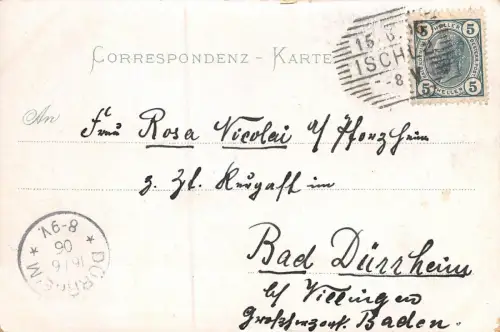 CORRESPONDENZ - KARTE
15.6.
ISCHL
8 V
5 HELLER 5
5 HELLER 5
An
Frau Rosa Nicolai a/ Pforzheim
z. Zt. Kurgast im
Bad Dürrheim
b/ Villingen
Großherzogt. Baden.
8-9V.
06
16/6
* DÜRRHEIM *